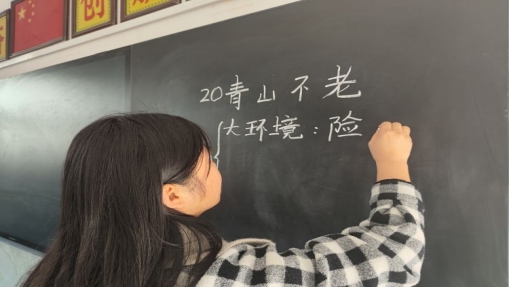 创
20青山不老
大环境：险